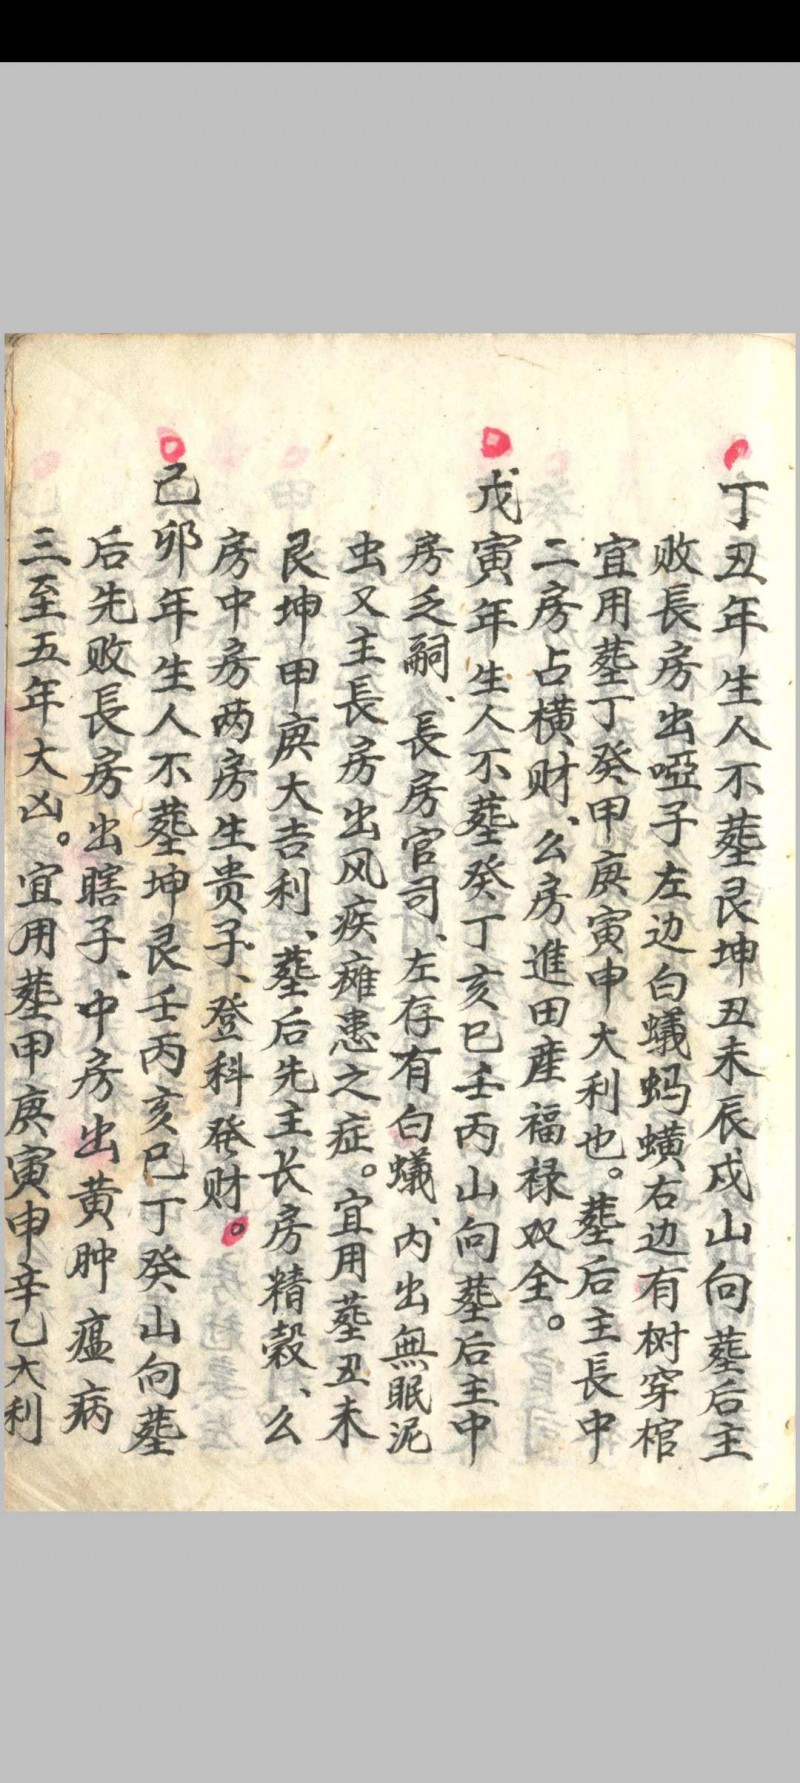 丁丑年生人不塟艮坤丑未辰戍山向塟后主
败長房出啞子左边白蟻蚂蟥右边有树穿棺
宜用塟丁癸甲庚寅申大利也。塟后主長中
二房占横财、么房進田産福禄双全。
戊寅年生人不塟癸丁亥巳壬丙山向塟后主中
房乏嗣、長房官司、左存有白蟻、内出無眠泥
虫又主長房出风疾瘫患之症。宜用塟丑未
艮坤甲庚大吉利、塟后先主长房精穀、么
房中房两房生贵子、登科発财。
己卯年生人不塟坤艮壬丙亥巳丁癸山向塟
后先败長房出瞎子、中房出黄肿瘟病
三至五年大凶。宜用塟甲庚寅申辛乙大利